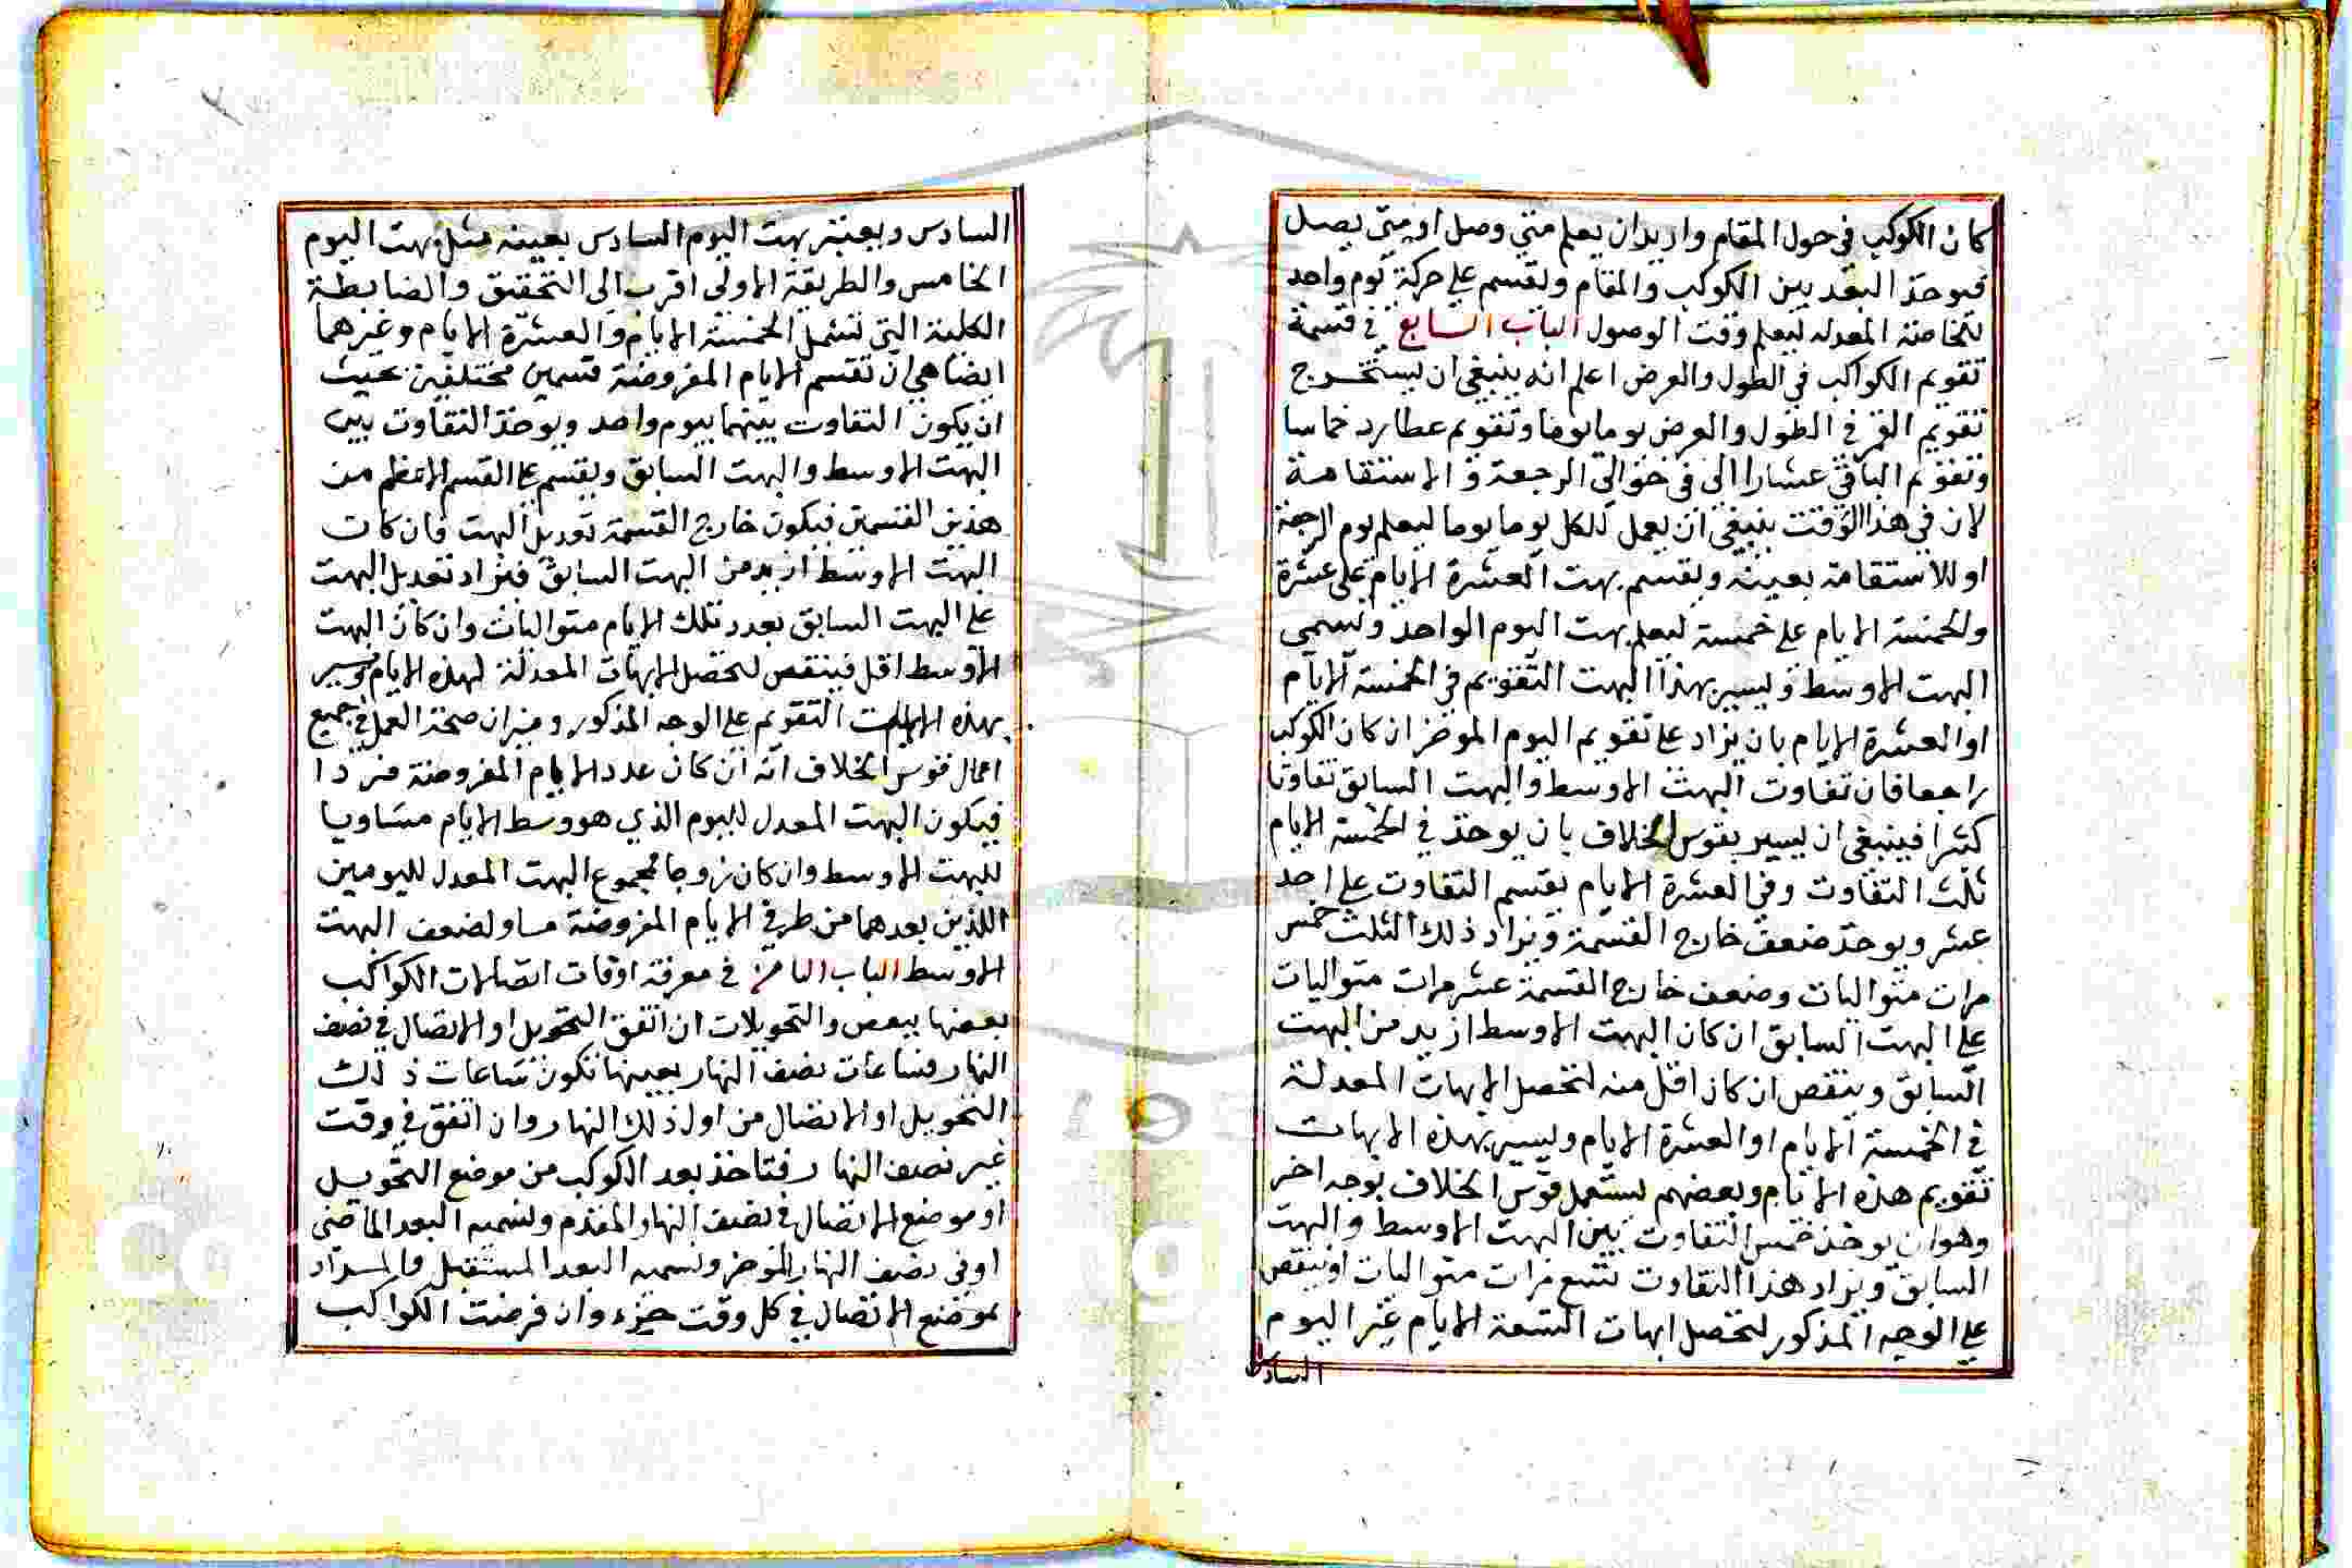 كان الكوكب في حول المقام واريد ان يعلم متى وصل او متى يصل
فيوخذ البعد بين الكوكب والمقام ويقسم على حركة يوم واحد
للخاصة المعدله ليعلم وقت الوصول الباب السابع في قسمة
تقويم الكواكب في الطول والعرض اعلم انه ينبغي ان يستخرج
تقويم القمر في الطول والعرض يوما يوما وتقويم عطارد خماسا
وتقويم الباقي عشارا الى في حوالي الرجعة و الاستقامة
لان في هذا الوقت ينبغي ان يعمل للكل يوما يوما ليعلم يوم الرجعة
او للاستقامة بعينه ويقسم بهت العشرة الايام على عشرة
ولخمسة الايام على خمسة ليعلم بهت اليوم الواحد ويسمى
البهت الاوسط ويسير بهذا البهت التقويم في الخمسة الايام
او العشرة الايام بان يزاد على تقويم اليوم الموخر ان كان الكوكب
راجعا فان تفاوت البهت الاوسط والبهت السابق تفاوتا
كثيرا فينبغي ان يسير بقوس الخلاف بان يوخذ في الخمسة الايام
ثلث التفاوت وفي العشرة الايام يقسم التفاوت على احد
عشر ويوخذ ضعف خارج القسمة ويزاد ذلك الثلث خمس
مرات متواليات وضعف خارج القسمة عشر مرات متواليات
على البهت السابق ان كان البهت الاوسط ازيد من البهت
السابق وينقص ان كان اقل منه لتحصل الابهات المعدلة
في الخمسة الايام او العشرة الايام ويسير بهذه الابهات
تقويم هذه الايام وبعضهم يستعمل قوس الخلاف بوجه اخر
وهو ان يوخذ خمس التفاوت بين البهت الاوسط والبهت
السابق ويزاد هذا التفاوت تسع مرات متواليات او ينقص
على الوجه المذكور لتحصل ابهات التسعة الايام غير اليوم
السادس
السادس وبعينه بهت اليوم السادس بعينه مثل بهت اليوم
الخامس والطريقة الاولى اقرب الى التحقيق والضابطة
الكلية التي تشمل الخمسة الايام والعشرة الايام وغيرهما
ايضا هي ان تقسم الايام المفروضة قسمين مختلفين بحيث
ان يكون التفاوت بينهما بيوم واحد ويوخذ التفاوت بين
البهت الاوسط والبهت السابق ويقسم على القسم الاعظم من
هذين القسمين فيكون خارج القسمة تعديل البهت فان كان
البهت الاوسط ازيد من البهت السابق فيزاد تعديل البهت
على البهت السابق بعدد تلك الايام متواليات وان كان البهت
الاوسط اقل فينقص لتحصل الابهات المعدلة لهذه الايام ويسير
بهذه الابهات التقويم على الوجه المذكور وميزان صحة العمل في جميع
اعمال قوس الخلاف انه ان كان عدد الايام المفروضة فردا
فيكون البهت المعدل لليوم الذي هو وسط الايام مساويا
للبهت الاوسط وان كان زوجا فمجموع البهت المعدل لليومين
اللذين بعدهما من طرفي الايام المفروضة مساو لضعف البهت
الاوسط الباب الثامن في معرفة اوقات اتصالات الكواكب
بعضها ببعض والتحويلات ان اتفق التحويل او الاتصال في نصف
النهار فساعات نصف النهار بعينها تكون ساعات ذلك
التحويل او الاتصال من اول ذلك النهار وان اتفق في وقت
غير نصف النهار فتاخذ بعد الكوكب من موضع التحويل
او موضع الاتصال في نصف النهار المقدم ونسميه البعد الماضي
او في نصف النهار الموخر ونسميه البعد المستقبل والمراد
بموضع الاتصال في كل وقت جزء وان فرضت الكواكب